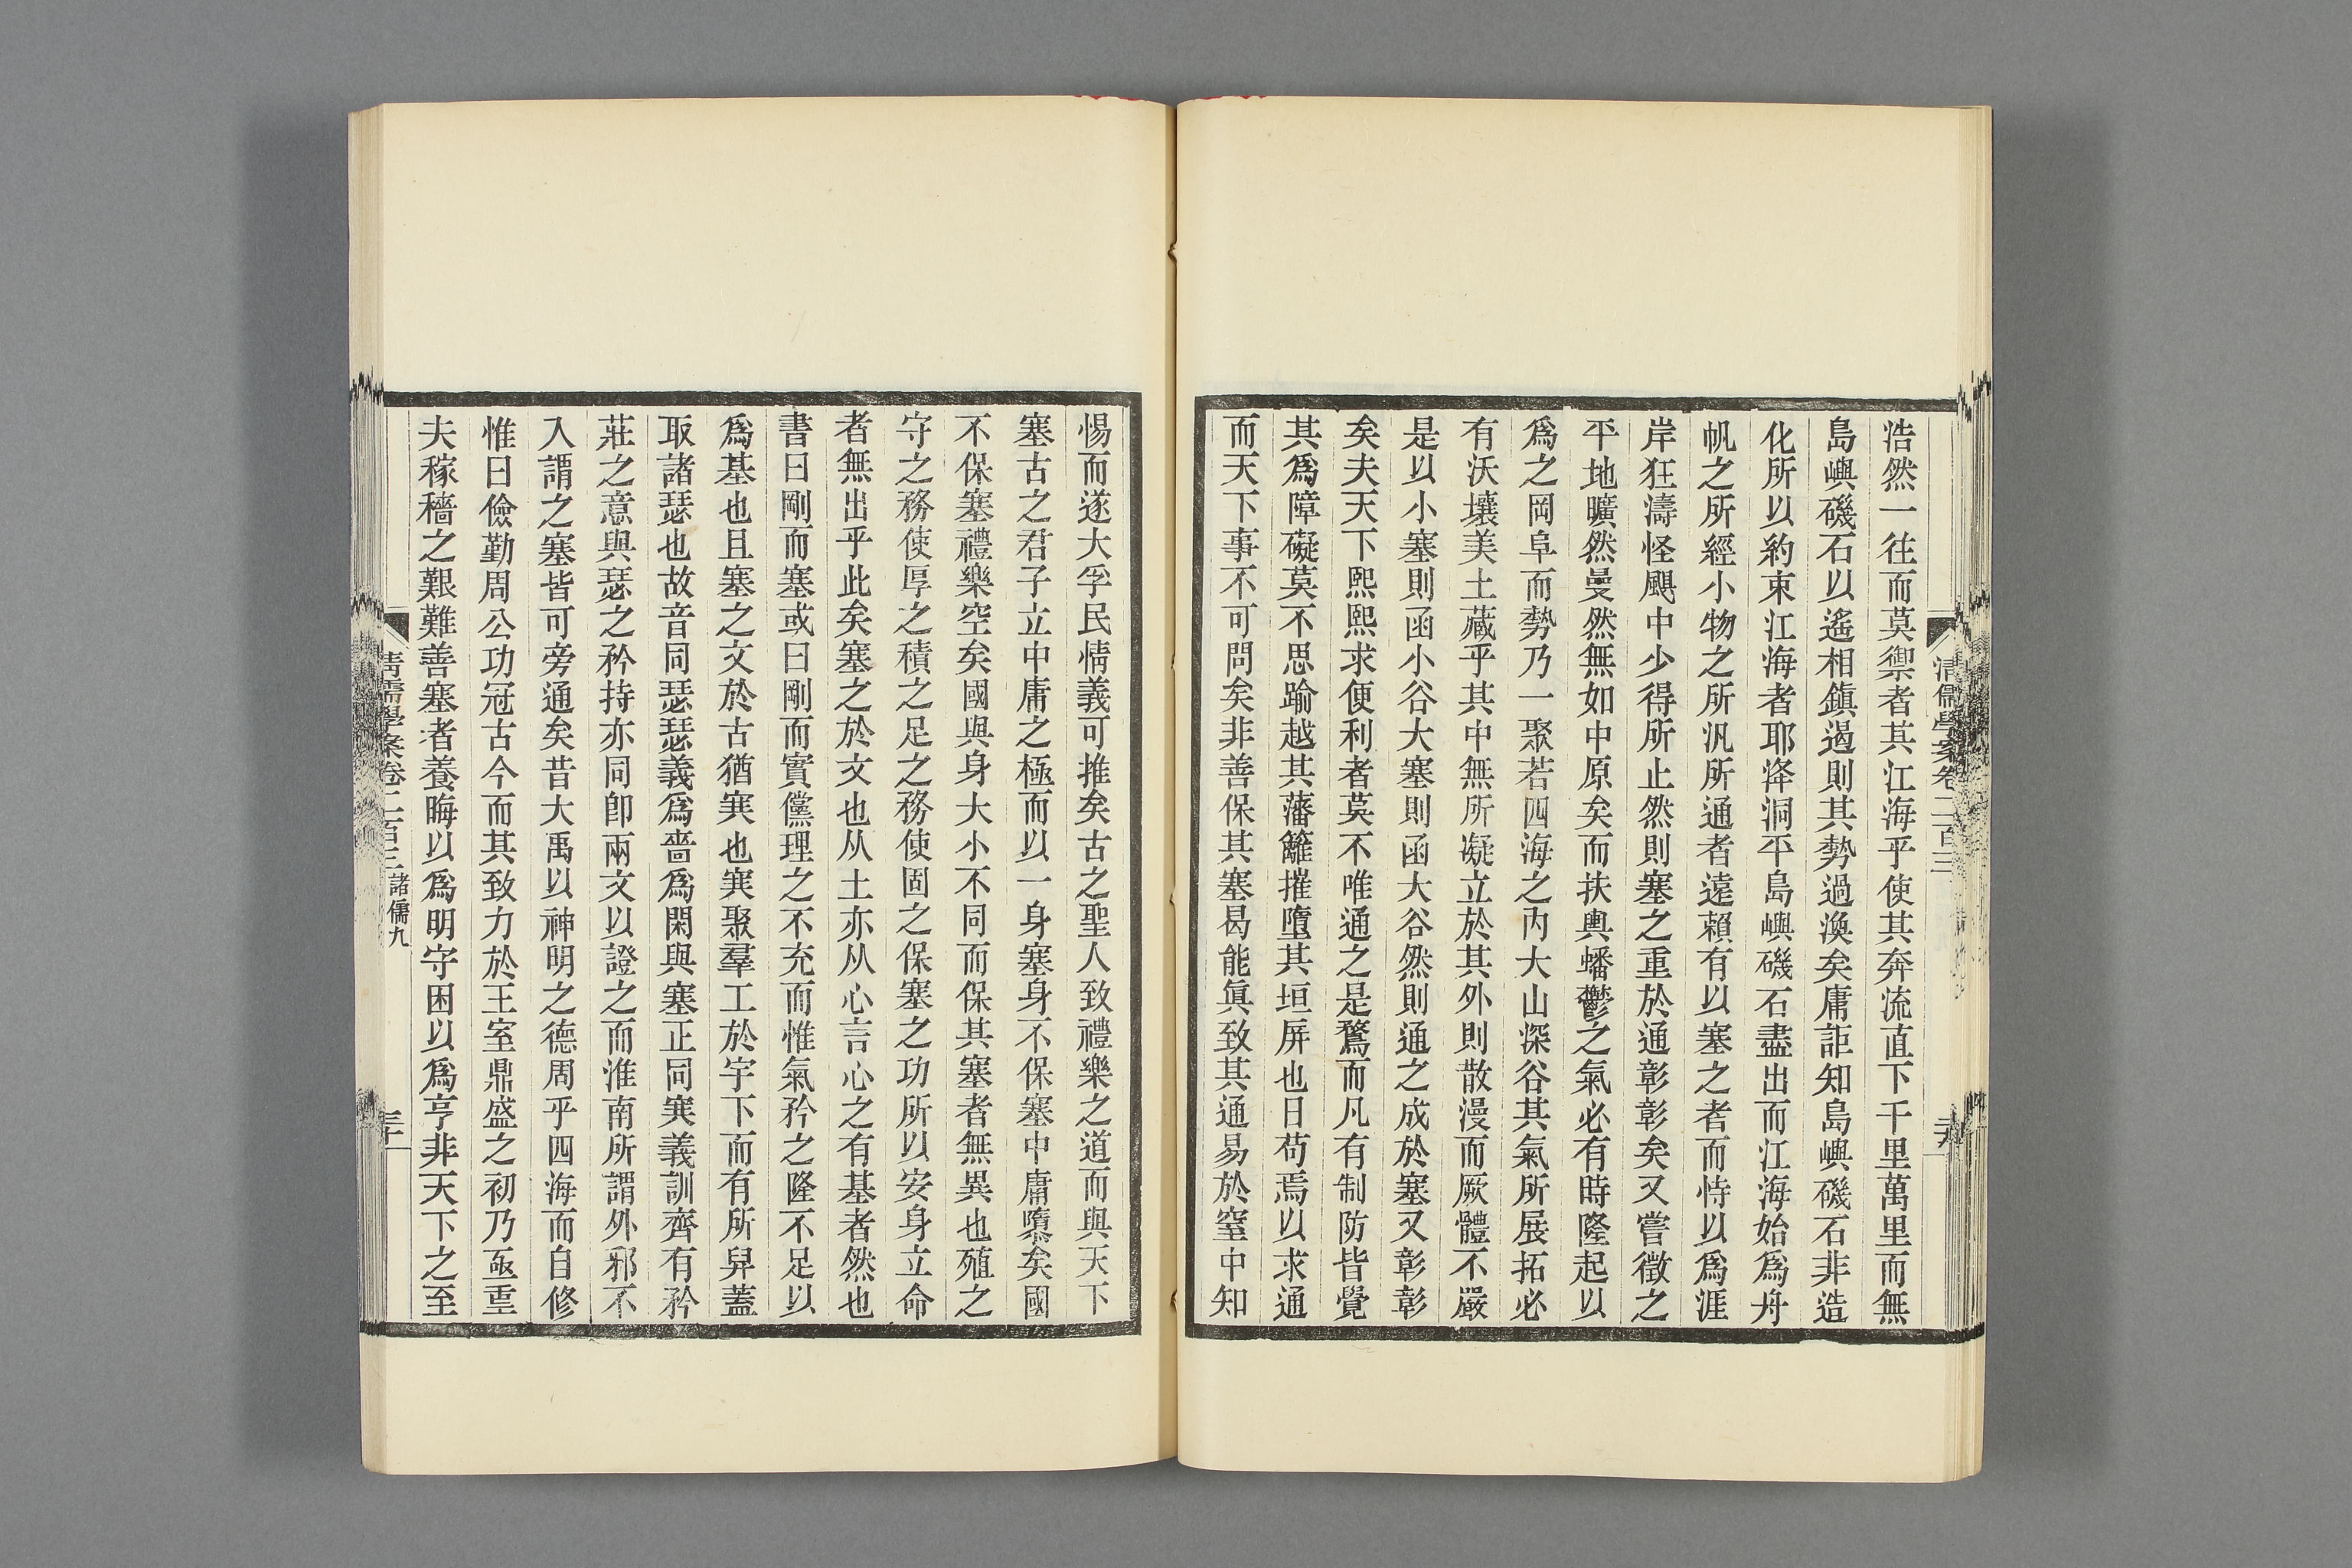 清儒學案卷二百三
浩然一往而莫禦者其江海乎使其奔流直下千里萬里而無
島嶼磯石以遙相鎮遏則其勢過渙矣庸詎知島嶼磯石非造
化所以約束江海者耶洚洞平島嶼磯石盡出而江海始爲舟
帆之所經小物之所汎所通者遠賴有以塞之者而恃以爲涯
岸狂濤怪颶中少得所止然則塞之重於通彰彰矣又嘗徵之
平地曠然曼然無如中原矣而扶輿蟠鬱之氣必有時隆起以
爲之岡阜而勢乃一聚若四海之內大山深谷其氣所展拓必
有沃壤美土藏乎其中無所凝立於其外則散漫而厥體不嚴
是以小塞則函小谷大塞則函大谷然則通之成於塞又彰彰
矣夫天下熙熙求便利者莫不唯通之是騖而凡有制防皆覺
其爲障礙莫不思踰越其藩籬摧墮其垣屏也日苟焉以求通
而天下事不可問矣非善保其塞曷能眞致其通易於窒中知
惕而遂大孚民情義可推矣古之聖人致禮樂之道而與天下
塞古之君子立中庸之極而以一身塞身不保塞中庸隳矣國
不保塞禮樂空矣國與身大小不同而保其塞者無異也殖之
守之務使厚之積之足之務使固之保塞之功所以安身立命
者無出乎此矣塞之於文也从土亦从心言心之有基者然也
書曰剛而塞或曰剛而實儻理之不充而惟氣矜之隆不足以
爲基也且塞之文於古猶㝩也㝩聚羣工於宇下而有所舁蓋
取諸瑟也故音同瑟瑟義爲嗇爲閑與塞正同㝩義訓齊有矜
莊之意與瑟之矜持亦同卽兩文以證之而淮南所謂外邪不
入謂之塞皆可旁通矣昔大禹以神明之德周乎四海而自修
惟曰儉勤周公功冠古今而其致力於王室鼎盛之初乃亟重
夫稼穡之艱難善塞者養晦以爲明守困以爲亨非天下之至
清儒學案卷二百三 諸儒九